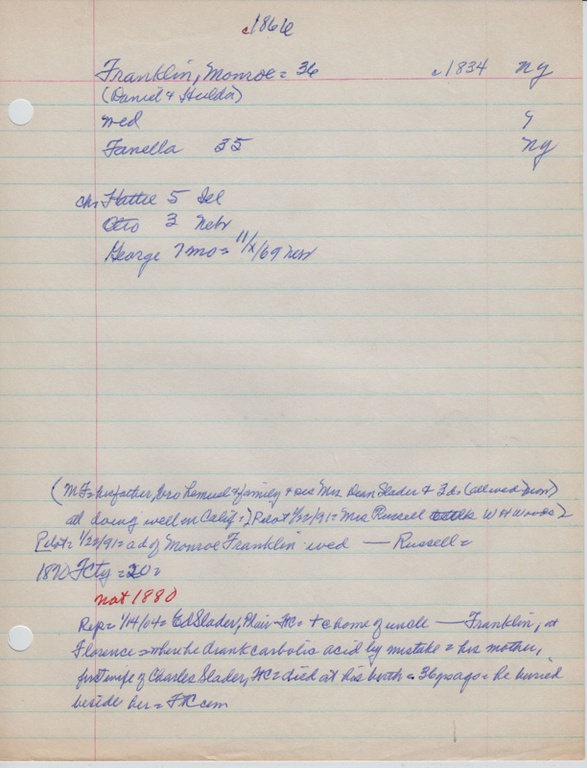 c1866
Franklin, Monroe = 36 c1834 NY
(Daniel & Hulda)
wed 9
Fanella 35 NY
ch. Hattie 5 Ill
Otto 3 Nebr
George 7 mo = 11/x/69 Nebr
(MF = his father, bro Lemuel & family & sis Mrs. Dean Slader & 3 ds (all wed)
all doing well in Calif =) Pilot 1/22/91 = Mrs Russell W H Woods)
Pilot = 1/22/91 = ad of Monroe Franklin wed — Russell =
1870 FCty = 20 =
not 1880
Rep = 1/14/04 = Ed Slader, Blair = @ home of uncle — Franklin, at
Florence = when he drank carbolic acid by mistake = his mother,
first wife of Charles Slader, = died at his birth = 36 yrs ago = he buried
beside her = cem